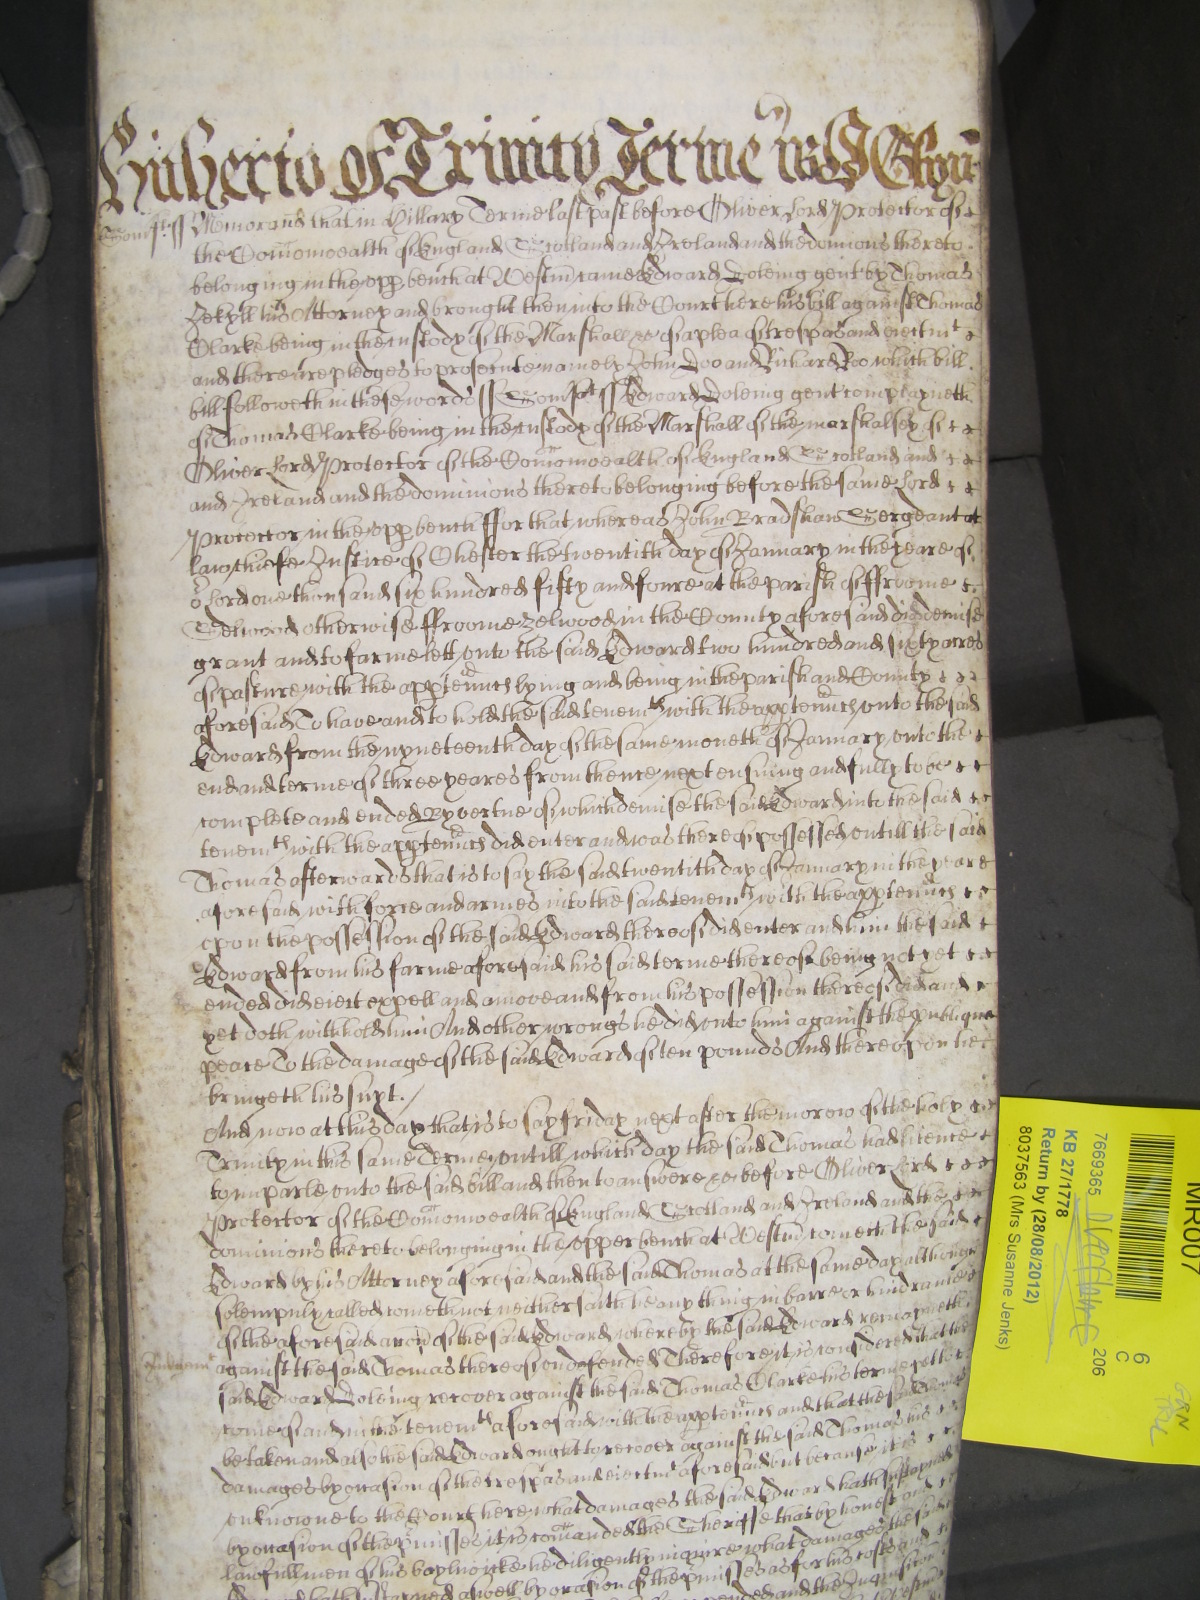 Hitherto Of Trinity Terme
Somst ss Memorand that in Hillary Terme last past before Oliver Lord Protector of
the Comonwealth of England Scotland and Ireland and the dominions thereto
belonging in the upp bench at Westm came Edward Doleing gent by Thomas
Jekyll his Attorney and brought then into the Court here his bill against Thomas
Clarke being in the custody of the Marshall &c of a plea of trespas and eiectmt
and there are pledges to prosecute namely John Doo and Richard Roo which bill
bill followeth in these words ss Somst ss Edward Doleing gent complayneth
of Thomas Clarke being in the custody of the Marshall of the marshalsey of
Oliver Lord Protector of the Comonwealth of England Scotland and
and Ireland and the dominions thereto belonging before the same Lord
Protector in the upp bench ffor that whereas John Bradshaw Sergeant at
law chiefe Justice of Chester the twentith day of January in the yeare of
or Lord one thousand six hundred fifty and foure at the parish of ffroome
Selwood otherwise ffroome Zelwood in the County aforesaid did demise
grant and to farme lett unto the said Edward two hundred and sixty acres
of pasture with the apptennces lying and being in the parish and County
aforesaid To have and to hold the said tenemts with the apptennces unto the said
Edward from the nyneteenth day of the same moneth of January unto the
end and terme of three yeares from thence next ensuing and fully to be
complete and ended By vertue of which demise the said Edward into the said
tenemts with the apptennces did enter and was thereof possessed untill the said
Thomas afterwards that is to say the said twentith day of January in the yeare
aforesaid with force and armes into the said tenemts with the apptennces
upon the possession of the said Edward thereof did enter and him the said
Edward from his farme aforesaid his said terme thereof being not yet
ended did eiect expell and amove and from his possession thereof did and
yet doth withhold him And other wrongs he did unto him against the publique
peace To the damage of the said Edward of ten pounds And thereupon hee
bringeth his suyt
And now at this day that is to say friday next after the morow of the holy
Trinity in this same Terme untill which day the said Thomas had licence
to imparle unto the said bill and then to answere &c before Oliver Lord
Protector of the Comonwealth of England Scotland and Ireland and the
dominions thereto belonging in the upper bench at Westm cometh the said
Edward by his Attorney aforesaid and the said Thomas at the same day although
solempnly called cometh not neither saith he any thing in barre or hindrance
of the aforesaid accon of the said Edward whereby the said Edward remayneth
against the said Thomas thereof undefended Therefore it is considered that the
said Edward Doleing recover against the said Thomas Clarke his terme yet to
come of and in the tenemts aforesaid with the apptennces and that the said Thomas
be taken and also the said Edward ought to recover against the said Thomas his
damages by occasion of the trespas and eiectmt aforesaid but because it is
unknowne to the Court here what damages the said Edward hath sustayned
by occasion of the pmisses it is comanded the Sheriffe that by honest and
lawfull men of his baylywicke he diligently inquire what damages the said
Edward hath sustayned aswell by occasion of the pmisses as for his costs and
MR007
6
C
7669365
C 206
KB 27/1778
Return by (28/08/2012)
8037563 (Mrs Susanne Jenks)